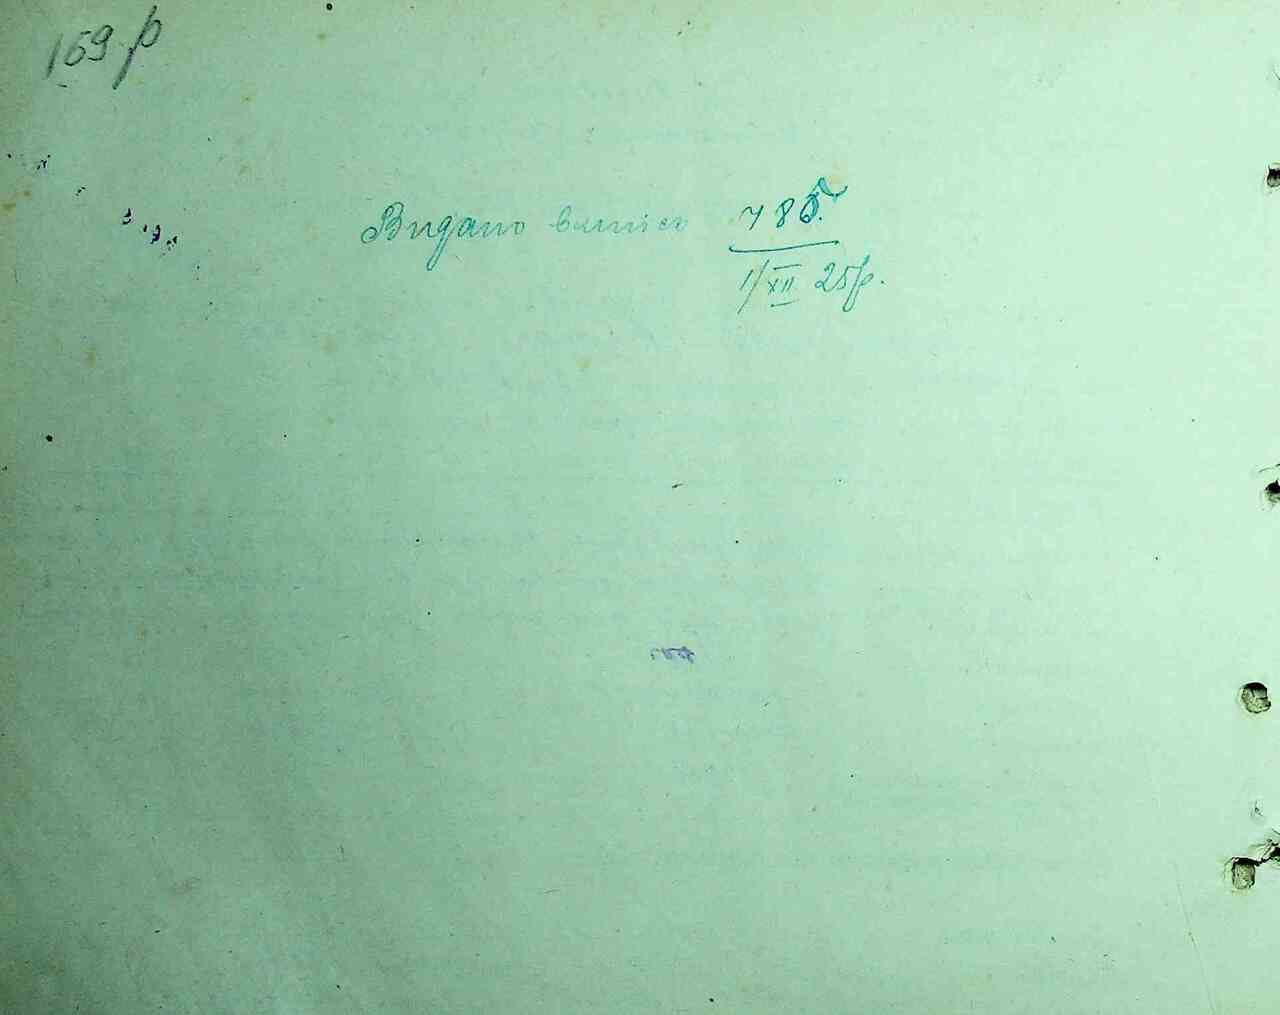 159 р
Видано випис 785
1/XII 25р.